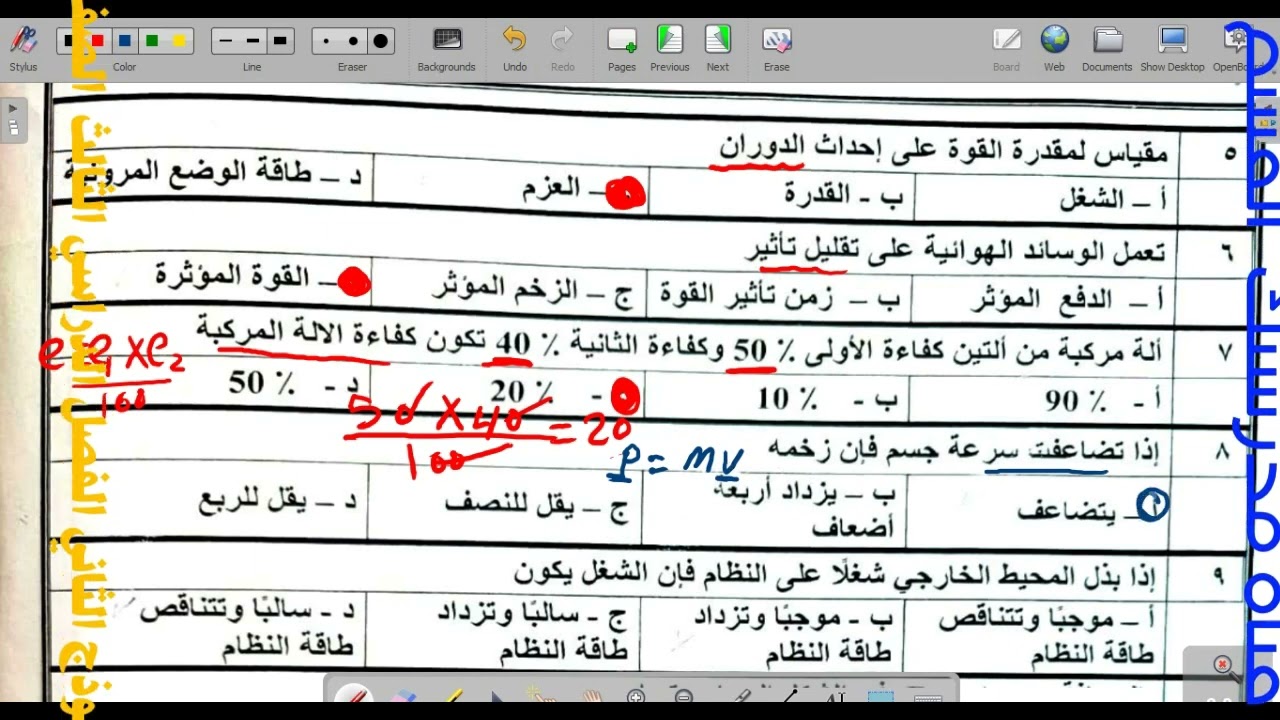 Stylus
Color
Line
Eraser
Backgrounds
Undo
Redo
Pages
Previous
Next
Erase
Board
Web
Documents
Show Desktop
٥ مقياس لمقدرة القوة على إحداث الدوران
أ – الشغل
ب - القدرة
– العزم
د – طاقة الوضع المرونية
٦ تعمل الوسائد الهوائية على تقليل تأثير
أ – الدفع المؤثر
ب – زمن تأثير القوة
ج – الزخم المؤثر
– القوة المؤثرة
٧ ألة مركبة من ألتين كفاءة الأولى % 50 وكفاءة الثانية % 40 تكون كفاءة الالة المركبة
أ - % 90
ب - % 10
- % 20
د - % 50
e e1 x e2
100
50 x 40 = 20
100
٨ إذا تضاعفت سرعة جسم فإن زخمه
P = mv
أ – يتضاعف
ب – يزداد أربعة
أضعاف
ج – يقل للنصف
د – يقل للربع
٩ إذا بذل المحيط الخارجي شغلًا على النظام فإن الشغل يكون
أ – موجبًا وتتناقص
طاقة النظام
ب - موجبًا وتزداد
طاقة النظام
ج - سالبًا وتزداد
طاقة النظام
د - سالبًا وتتناقص
طاقة النظام
الفصل الدراسي الثالث